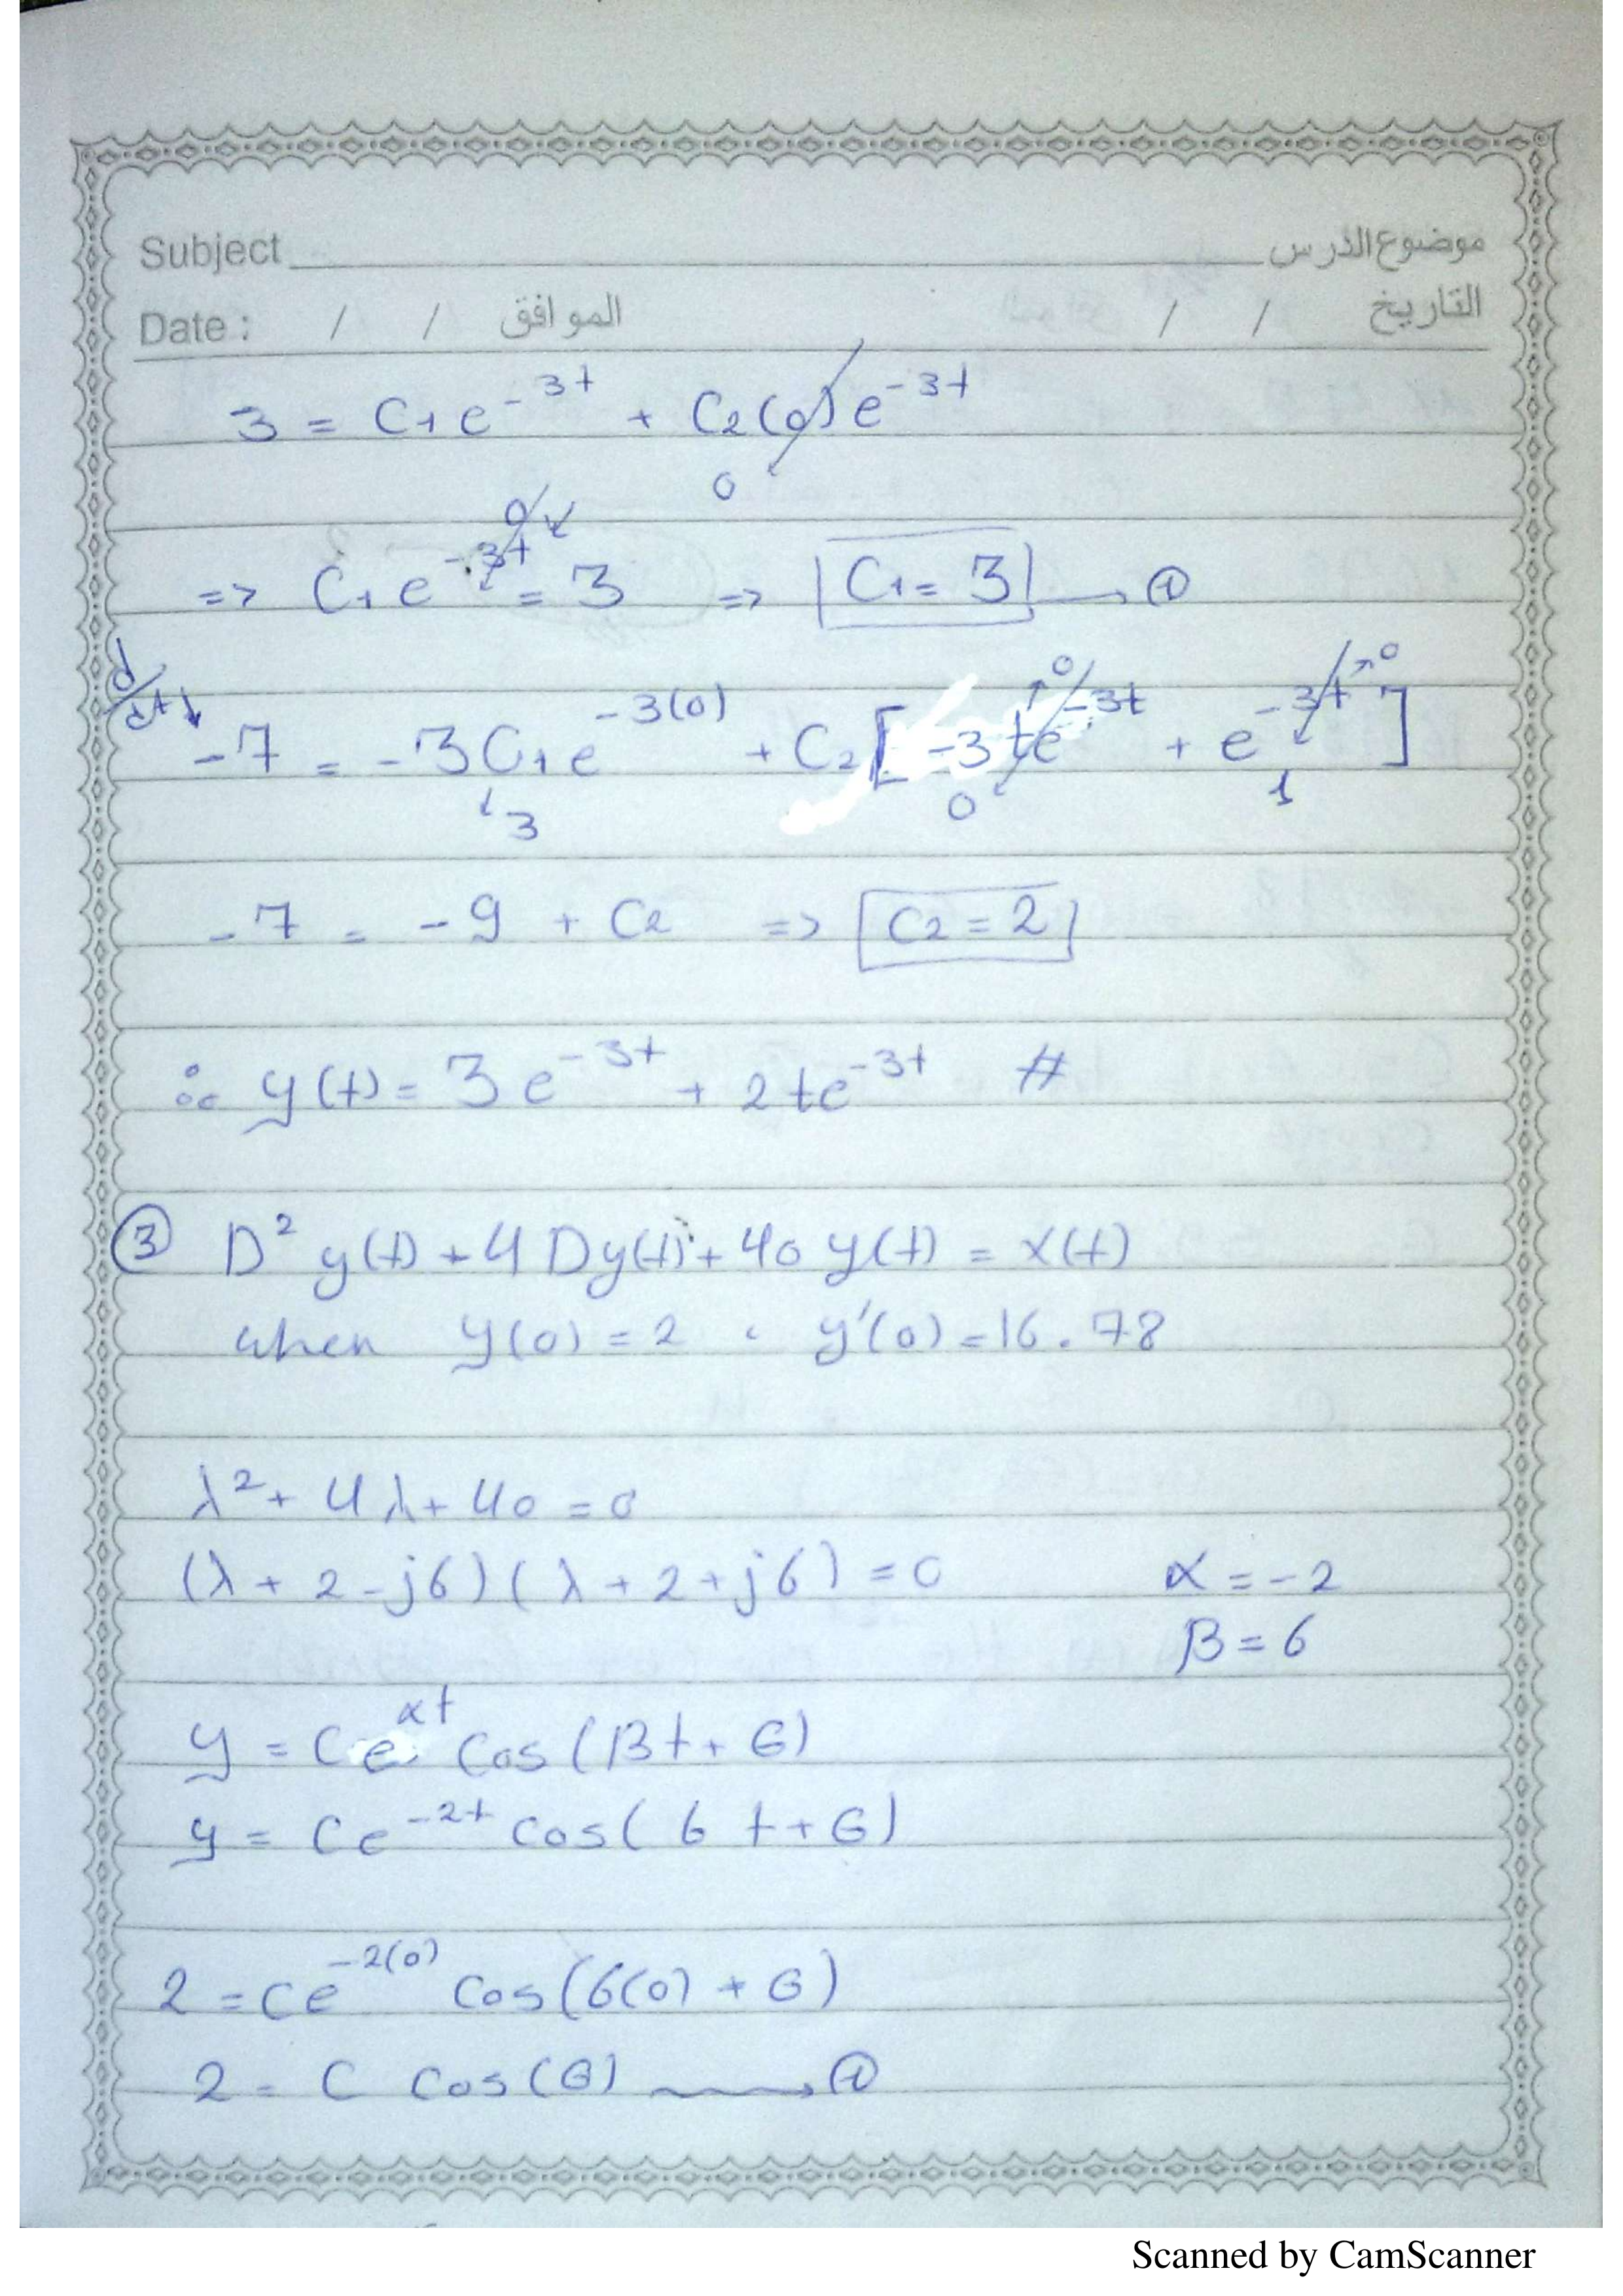 Subject موضوع الدرس
Date : / / الموافق / / التاريخ
3 = C₁ e^-3t + C₂ (0) e^-3t
0
0
=> C₁ e^-3t = 3 => C₁ = 3 → ⓐ
d/dt -7 = -3 C₁ e^-3(0) + C₂ [ -3 t e^-3t + e^-3t ]
0 0
3 0 1
-7 = -9 + C₂ => C₂ = 2
∴ y(t) = 3 e^-3t + 2 t e^-3t #
③ D² y(t) + 4 D y(t) + 40 y(t) = x(t)
when y(0) = 2 , y'(0) = 16.78
λ² + 4 λ + 40 = 0
(λ + 2 - j6) ( λ + 2 + j6) = 0 α = -2
β = 6
y = C e^αt Cos (βt + θ)
y = C e^-2t cos( 6 t + θ)
2 = C e^-2(0) Cos (6(0) + θ)
2 = C Cos (θ) → ⓐ
Scanned by CamScanner